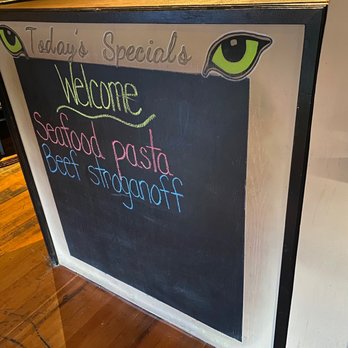 Today's Specials
Welcome
Seafood pasta
Beef stroganoff